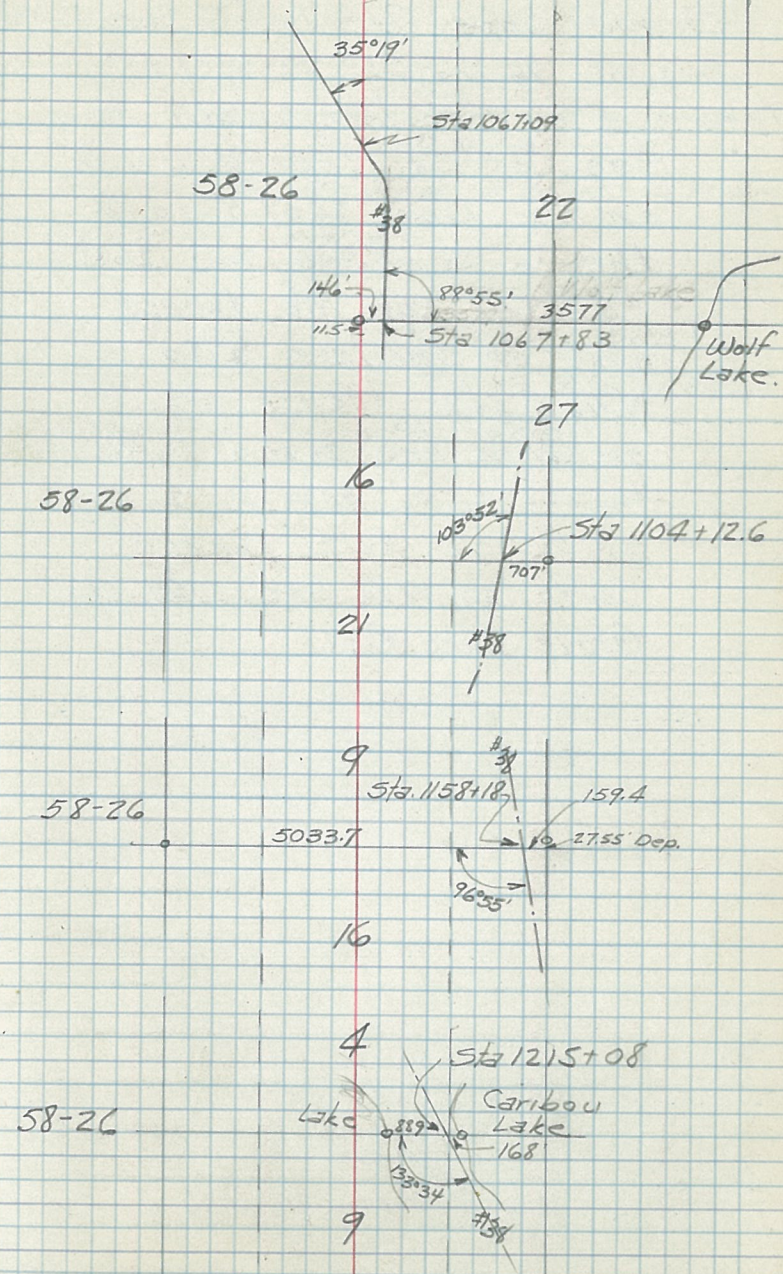 35°19'
Sta 1067+09
58-26
22
#38
146'
88°55'
3577
11.5
Sta 1067+83
Wolf
Lake.
27
16
58-26
103°52'
Sta 1104+12.6
707'
21
#38
9
#38
Sta. 1158+18
159.4
58-26
5033.7
27.55' Dep.
96°55'
16
4
Sta 1215+08
Caribou
Lake
58-26
Lake
889
168'
133°34'
9
#38